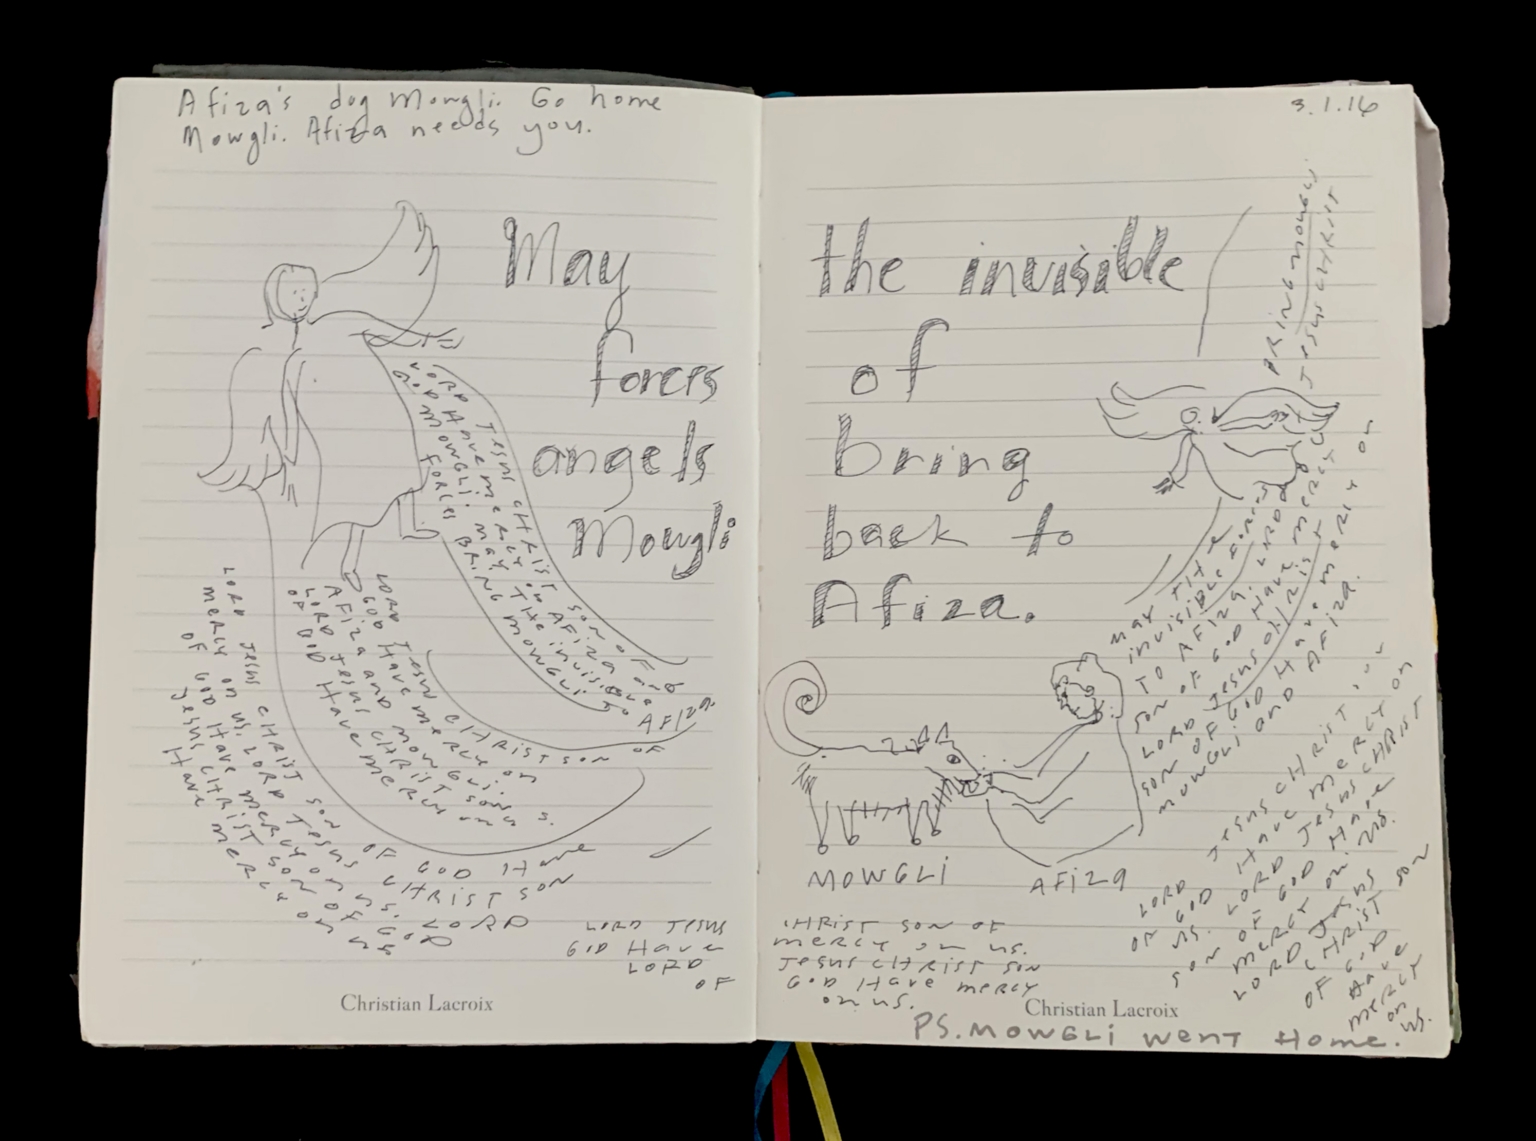 Afiza's dog Mowgli. Go home
Mowgli. Afiza needs you.
3.1.16
May the invisible
forces of
angels bring
Mowgli back to
Afiza.
LORD JESUS CHRIST SON OF
GOD HAVE MERCY ON AFIZA AND
MOWGLI. MAY THE INVISIBLE
FORCES BRING MOWGLI
TO AFIZA.
LORD JESUS CHRIST SON OF
GOD HAVE MERCY ON
AFIZA AND MOWGLI.
LORD JESUS CHRIST SON
OF GOD HAVE MERCY ON
US.
LORD JESUS CHRIST SON OF GOD HAVE
MERCY ON US. LORD JESUS CHRIST SON
OF GOD HAVE MERCY ON US. LORD
JESUS CHRIST SON OF GOD
HAVE MERCY ON US
BRING MOWGLI
JESUS CHRIST
MAY THE
INVISIBLE FORCES
TO AFIZA. LORD
SON OF GOD HAVE MERCY
LORD JESUS CHRIST
SON OF GOD HAVE MERCY ON
MOWGLI AND AFIZA.
MOWGLI
AFIZA
LORD JESUS CHRIST SON OF
GOD HAVE MERCY ON US.
LORD JESUS CHRIST SON
OF GOD HAVE MERCY
ON US.
LORD JESUS CHRIST SON
OF GOD HAVE MERCY ON
US. LORD JESUS CHRIST
SON OF GOD HAVE
MERCY ON US.
LORD JESUS
CHRIST SON
OF GOD
HAVE
MERCY
ON
US.
Christian Lacroix
Christian Lacroix
PS. MOWGLI WENT HOME.